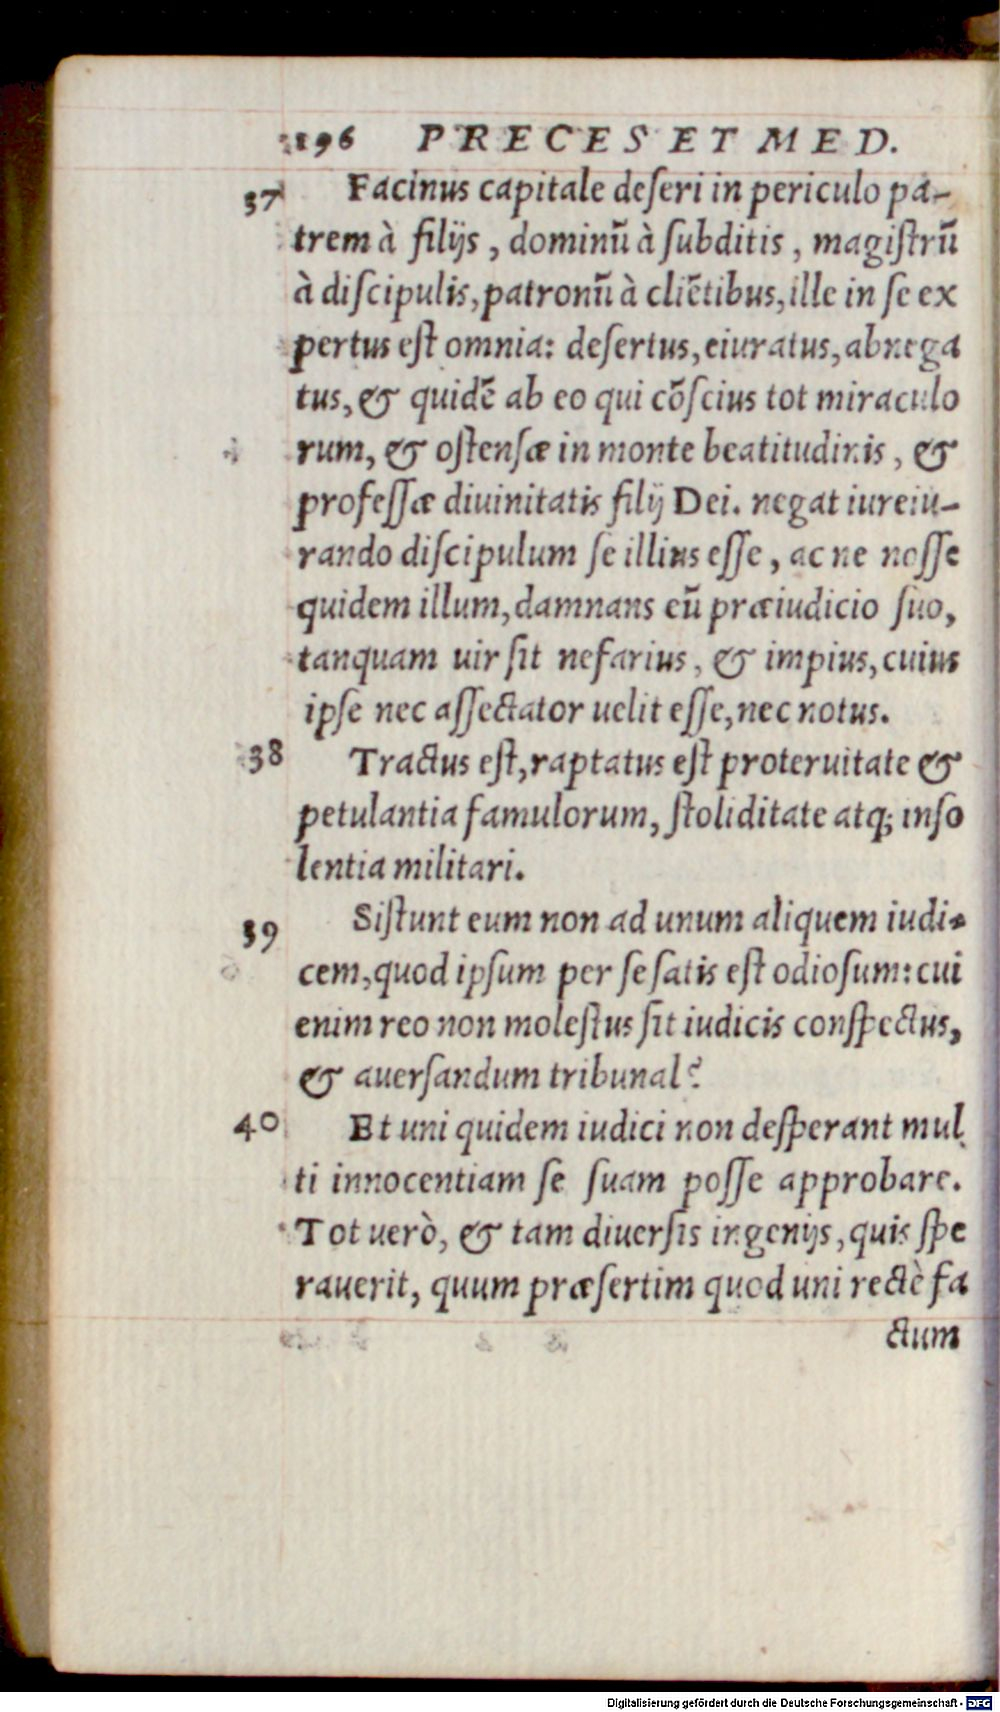 196 PRECES ET MED.
37 Facinus capitale deſeri in periculo pa-
trem à filijs, dominũ à ſubditis, magiſtrũ
à diſcipulis, patronũ à cliẽtibus, ille in ſe ex
pertus eſt omnia: deſertus, eiuratus, abnega
tus, & quidẽ ab eo qui cõſcius tot miraculo
rum, & oſtenſæ in monte beatitudinis, &
profeſſæ diuinitatis filij Dei. negat iureiu-
rando diſcipulum ſe illius eſſe, ac ne noſſe
quidem illum, damnans eũ præiudicio ſuo,
tanquam uir ſit nefarius, & impius, cuius
ipſe nec aſſectator uelit eſſe, nec notus.
38 Tractus eſt, raptatus eſt proteruitate &
petulantia famulorum, ſtoliditate atq; inſo
lentia militari.
39 Siſtunt eum non ad unum aliquem iudi-
cem, quod ipſum per ſe ſatis eſt odioſum: cui
enim reo non moleſtus ſit iudicis conſpectus,
& auerſandum tribunal?
40 Et uni quidem iudici non deſperant mul
ti innocentiam ſe ſuam poſſe approbare.
Tot uerò, & tam diuerſis ingenijs, quis ſpe
rauerit, quum præſertim quod uni rectè fa
ctum
Digitalisierung gefördert durch die Deutsche Forschungsgemeinschaft - DFG